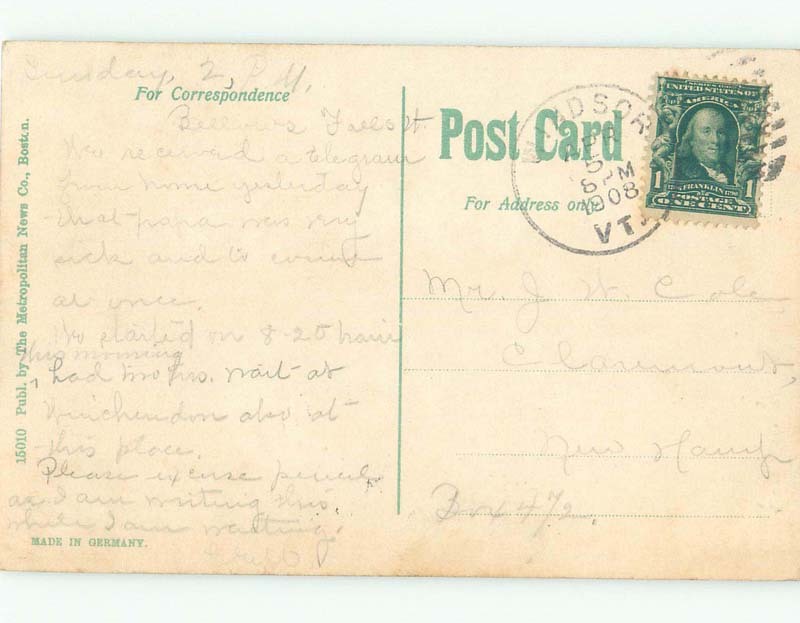 Sunday, 2, P.M.
For Correspondence
Bellows Falls Vt.
We received a telegram
from home yesterday
that papa was very
sick and to come
at once.
We started on 8-20 train
this morning
had two hrs. wait at
Winchendon also at
this place.
Please excuse pencil
as I am writing this
while I am waiting.
15010 Publ. by The Metropolitan News Co., Boston.
MADE IN GERMANY.
Post Card
For Address only
WINDSOR
5
6 PM
1908
VT.
SERIES 1902
UNITED STATES OF
AMERICA
1 FRANKLIN 1
POSTAGE
ONE CENT
Mr. J. W. Cole
Claremont,
New Hamp
Box 472.